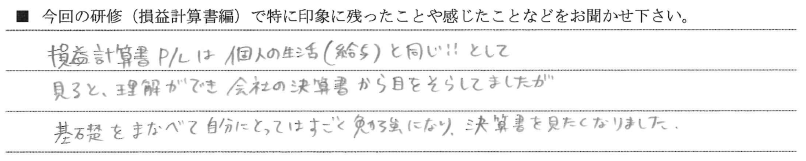 ■ 今回の研修（損益計算書編）で特に印象に残ったことや感じたことなどをお聞かせ下さい。
損益計算書P/Lは個人の生活（給与）と同じ!!として
見ると、理解ができ会社の決算書から目をそらしてましたが
基礎をまなべて自分にとってはすごく勉強になり、決算書を見たくなりました.